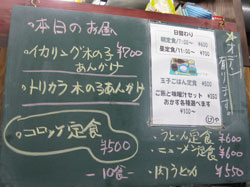 本日のお昼
イカリング木の子 ¥700
あんかけ
トリカラ木の子あんかけ
コロッケ定食
¥500
—10食—
日替わり
朝定食/7:00〜 ¥600
昼定食/11:00〜
玉子ごはん定食
ご飯と味噌汁セット
おかず各種選べます
オデン
うどん定食 ¥600
ニューメン定食 ¥600
肉うどん ¥550